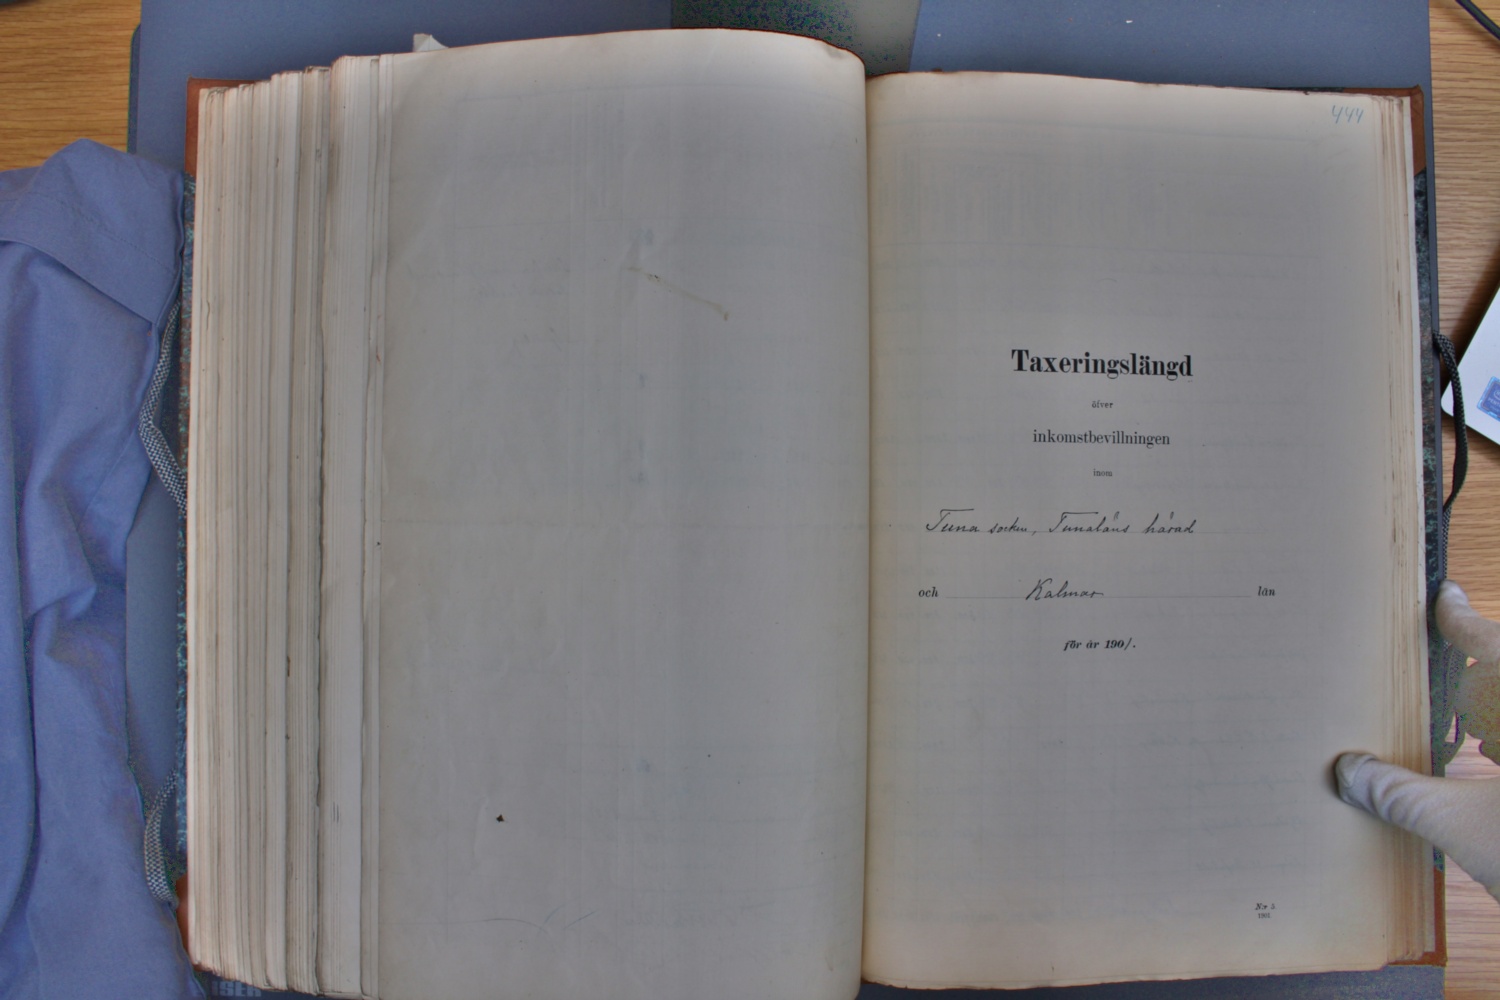 444
Taxeringslängd
öfver
inkomstbevillningen
inom
Tuna socken, Tunaläns härad
och Kalmar län
för år 1901.
Nr 5.
1901.